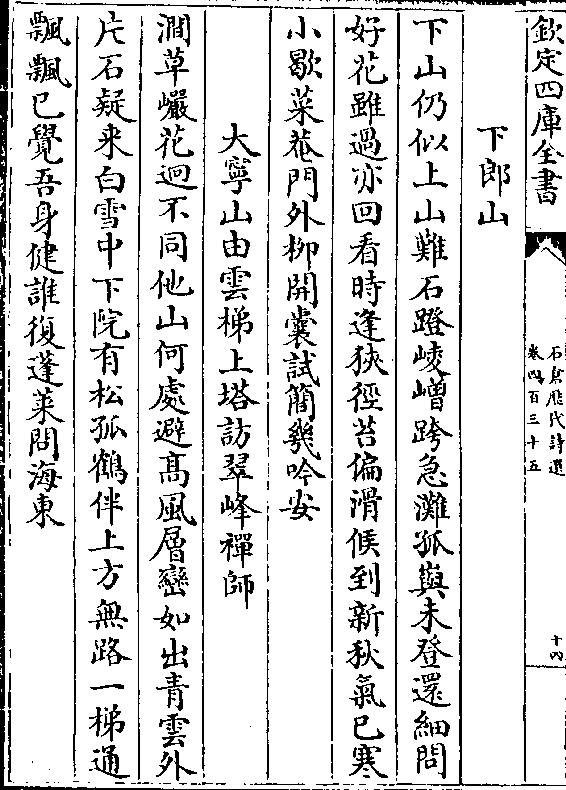 欽定四庫全書
石倉歷代詩選
卷四百三十五
十四
下郎山
下山仍似上山難石蹬崚嶒跨急灘孤嶼未登還細問
好花雖過亦回看時逢狹徑苔偏滑候到新秋氣已寒
小歇菜菴門外柳開囊試簡幾吟安
大寧山由雲梯上塔訪翠峰禪師
澗草巖花迥不同他山何處避高風層巒如出青雲外
片石疑来白雪中下院有松孤鶴伴上方無路一梯通
飄飄已覺吾身健誰復蓬萊問海東